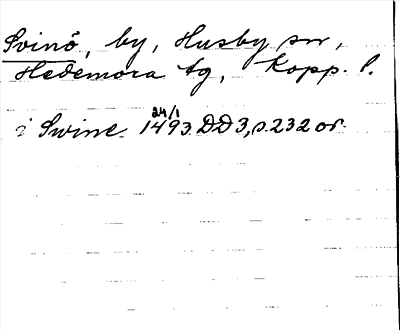 Svinö, by, Husby sn,
Hedemora tg, Kopp. l.
24/1
i Swine 1493 DD3, s. 232 or.